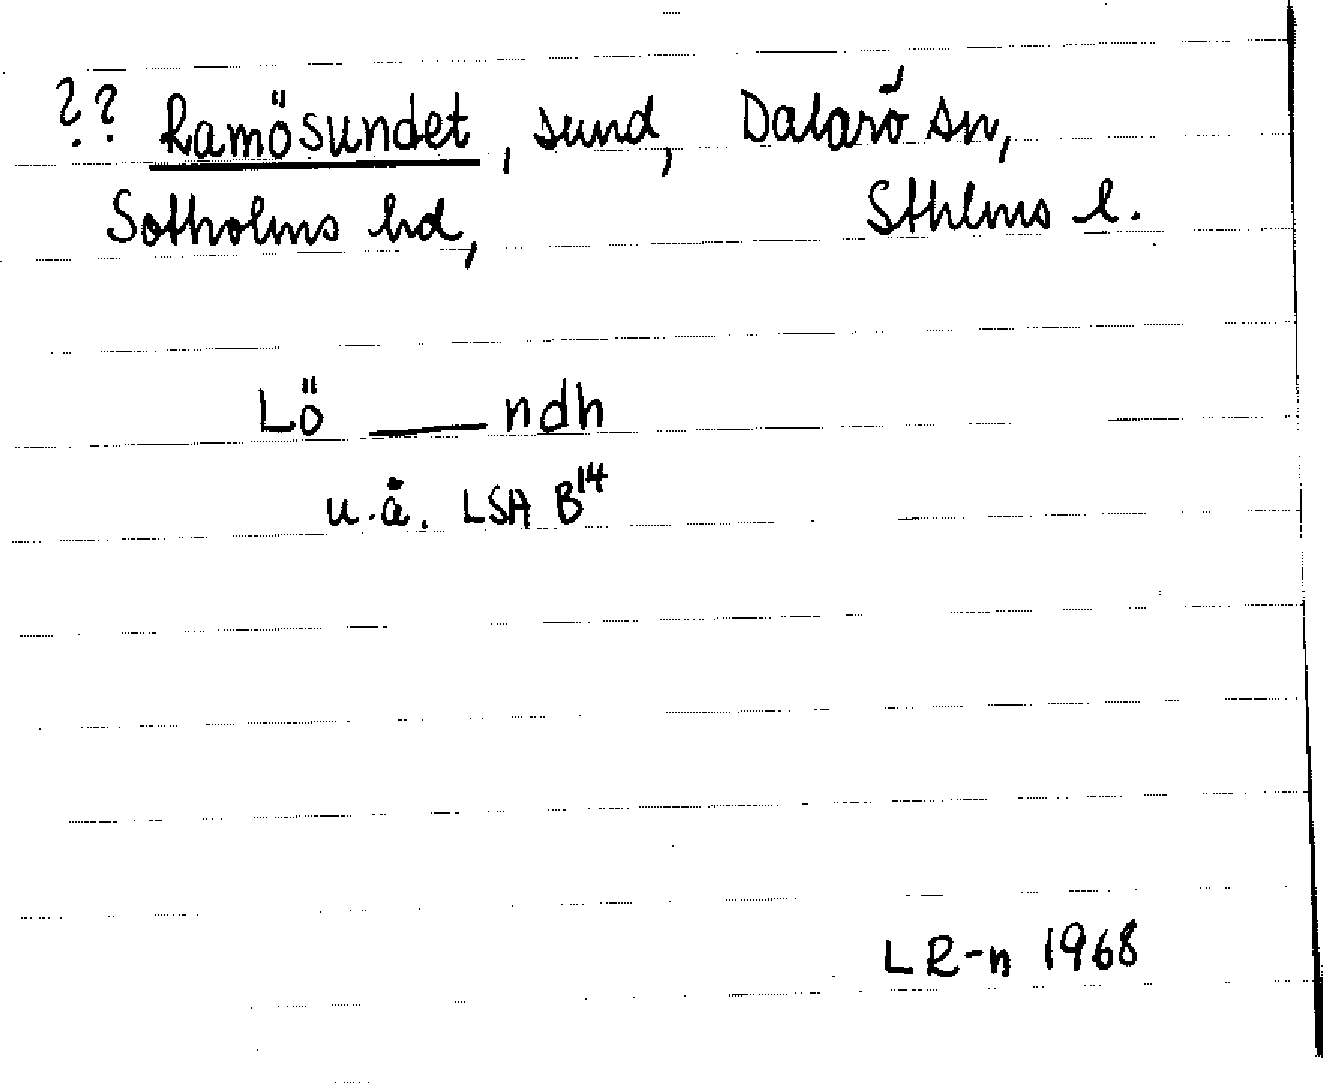 ?? Ramösundet, sund, Dalarö sn,
Sotholms hd, Sthlms l.
Lö ____ ndh
u.å. LSA B14
LR-n 1968